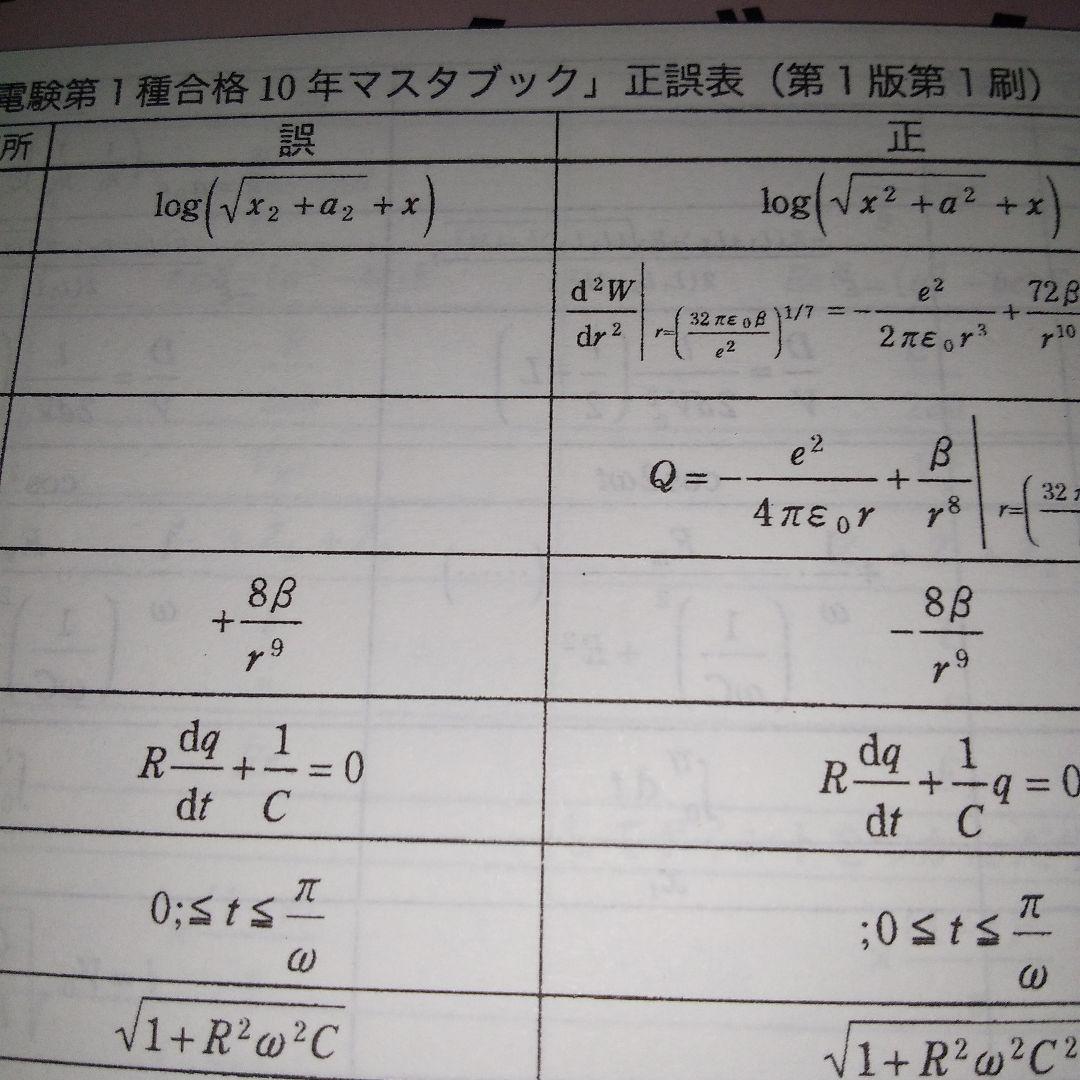 電験第1種合格10年マスタブック」正誤表（第1版第1刷）
所 誤 正
log(√(x₂+a₂)+x) log(√(x²+a²)+x)
d²W/dr²|r=(32πε₀β/e²)^1/7 = −e²/2πε₀r³ + 72β/r¹⁰
Q=−e²/4πε₀r + β/r⁸|r=(32π
+8β/r⁹ −8β/r⁹
R dq/dt + 1/C = 0 R dq/dt + 1/C q = 0
0;≦t≦π/ω ;0≦t≦π/ω
√(1+R²ω²C) √(1+R²ω²C²